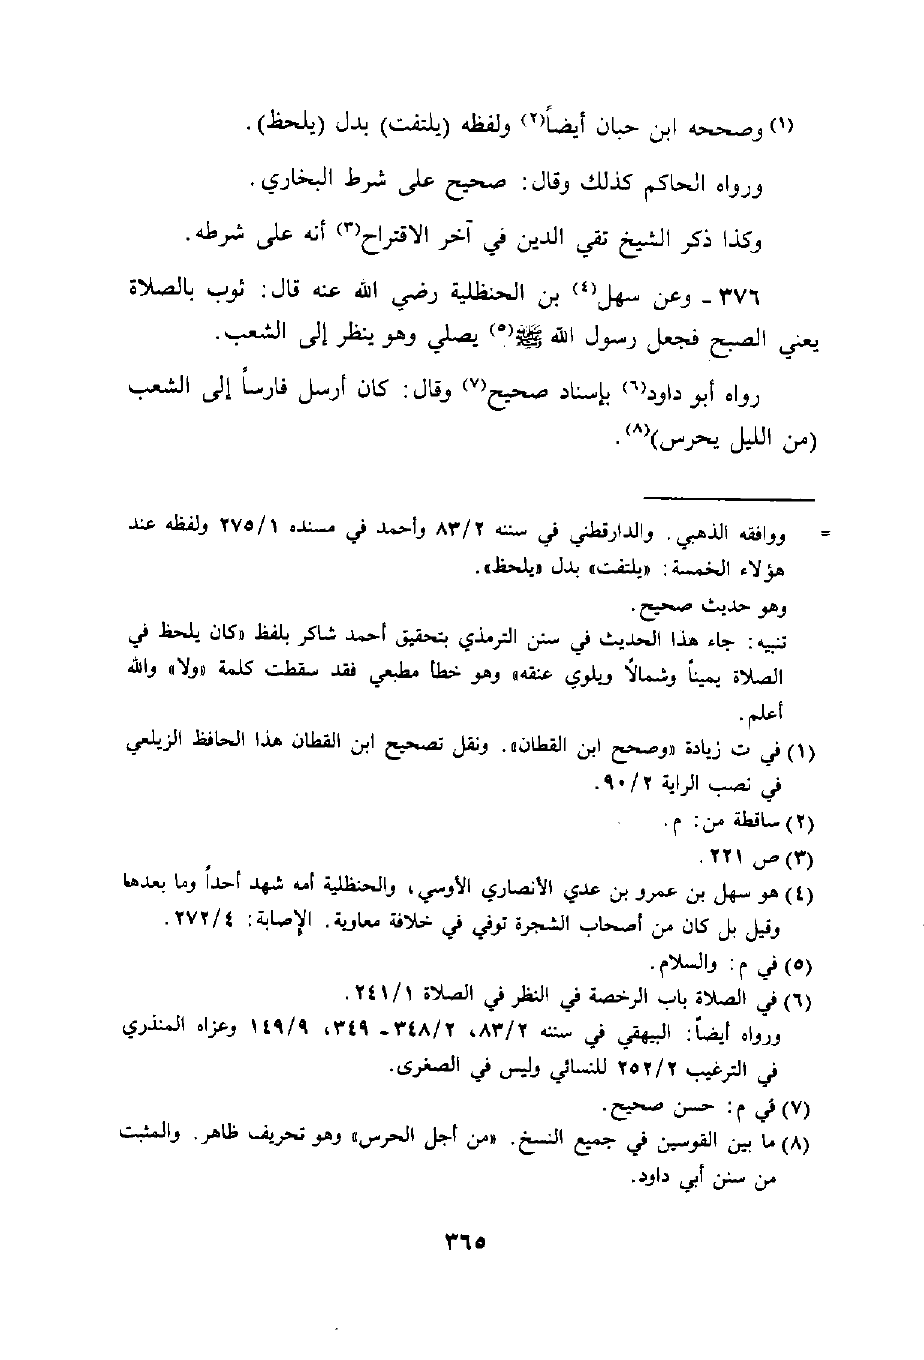 (١) وصححه ابن حبان أيضاً(٢) ولفظه (يلتفت) بدل (يلحظ).
ورواه الحاكم كذلك وقال: صحيح على شرط البخاري.
وكذا ذكر الشيخ تقي الدين في آخر الاقتراح(٣) أنه على شرطه.
٣٧٦ ـ وعن سهل(٤) بن الحنظلية رضي الله عنه قال: ثوب بالصلاة
يعني الصبح فجعل رسول الله ﷺ(٥) يصلي وهو ينظر إلى الشعب.
رواه أبو داود(٦) بإسناد صحيح(٧) وقال: كان أرسل فارساً إلى الشعب
(من الليل يحرس)(٨).
= ووافقه الذهبي. والدارقطني في سننه ٨٣/٢ وأحمد في مسنده ٢٧٥/١ ولفظه عند
هؤلاء الخمسة: «يلتفت» بدل «يلحظ».
وهو حديث صحيح.
تنبيه: جاء هذا الحديث في سنن الترمذي بتحقيق أحمد شاكر بلفظ «كان يلحظ في
الصلاة يميناً وشمالاً ويلوي عنقه» وهو خطأ مطبعي فقد سقطت كلمة «ولا» والله
أعلم.
(١) في ت زيادة «وصحح ابن القطان». ونقل تصحيح ابن القطان هذا الحافظ الزيلعي
في نصب الراية ٩٠/٢.
(٢) ساقطة من: م.
(٣) ص ٢٢١.
(٤) هو سهل بن عمرو بن عدي الأنصاري الأوسي، والحنظلية أمه شهد أحداً وما بعدها
وقيل بل كان من أصحاب الشجرة توفي في خلافة معاوية. الإصابة: ٢٧٢/٤.
(٥) في م: والسلام.
(٦) في الصلاة باب الرخصة في النظر في الصلاة ٢٤١/١.
ورواه أيضاً: البيهقي في سننه ٨٣/٢، ٣٤٨/٢ ـ ٣٤٩، ١٤٩/٩ وعزاه المنذري
في الترغيب ٢٥٢/٢ للنسائي وليس في الصغرى.
(٧) في م: حسن صحيح.
(٨) ما بين القوسين في جميع النسخ. «من أجل الحرس» وهو تحريف ظاهر. والمثبت
من سنن أبي داود.
٣٦٥